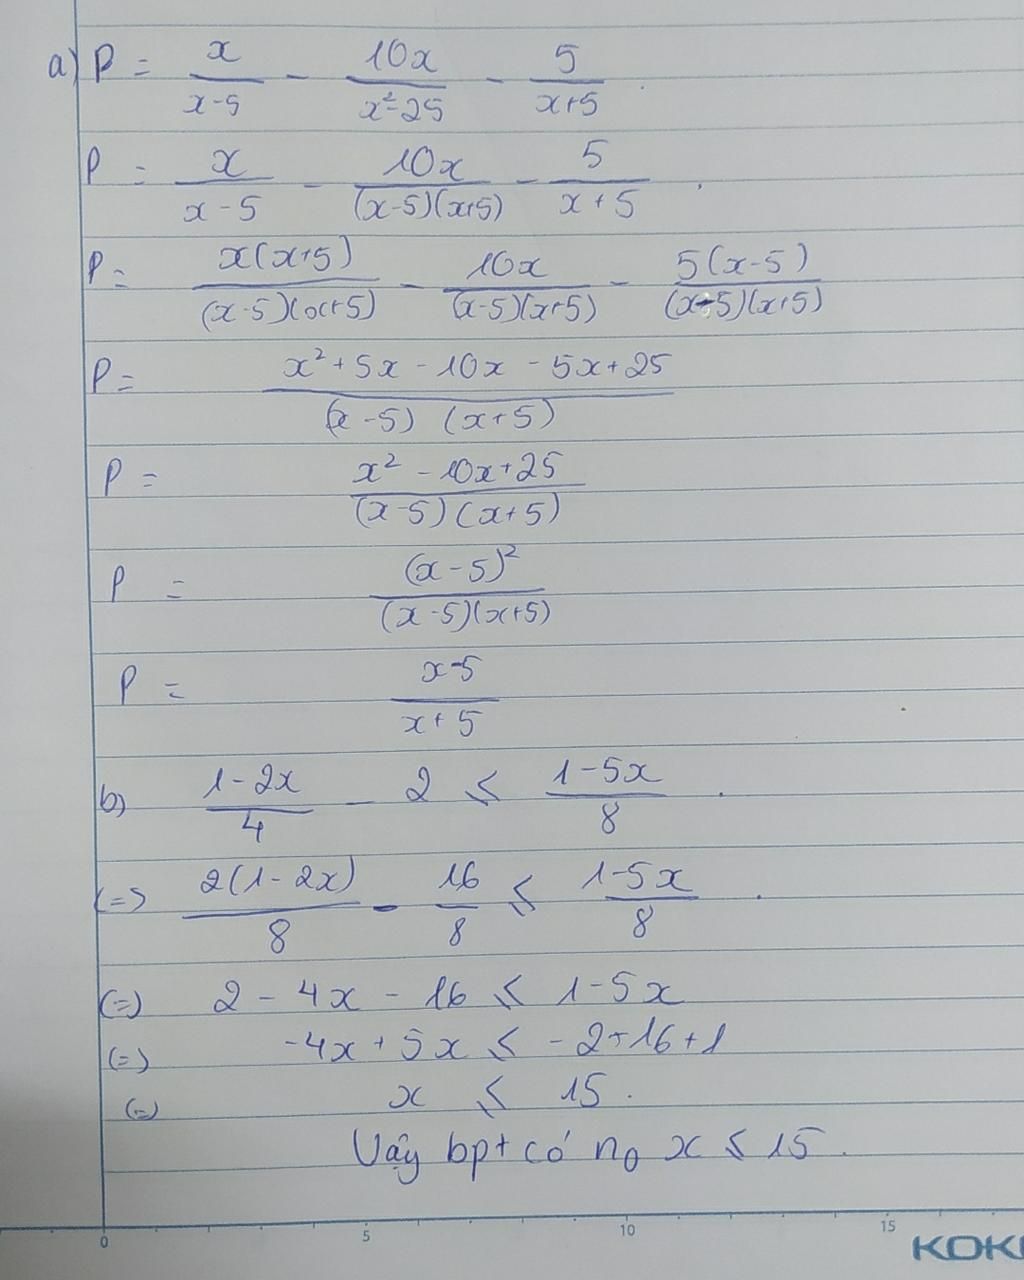 a) P = x/(x-5) - 10x/(x²-25) - 5/(x+5)
P = x/(x-5) - 10x/((x-5)(x+5)) - 5/(x+5)
P = x(x+5)/((x-5)(x+5)) - 10x/((x-5)(x+5)) - 5(x-5)/((x-5)(x+5))
P = (x²+5x-10x-5x+25)/((x-5)(x+5))
P = (x²-10x+25)/((x-5)(x+5))
P = (x-5)²/((x-5)(x+5))
P = (x-5)/(x+5)
b) (1-2x)/4 - 2 ≤ (1-5x)/8
(=) 2(1-2x)/8 - 16/8 ≤ (1-5x)/8
(=) 2 - 4x - 16 ≤ 1-5x
(=) -4x + 5x ≤ -2+16+1
(=) x ≤ 15.
Vậy bpt có n0 x ≤ 15.
0 5 10 15